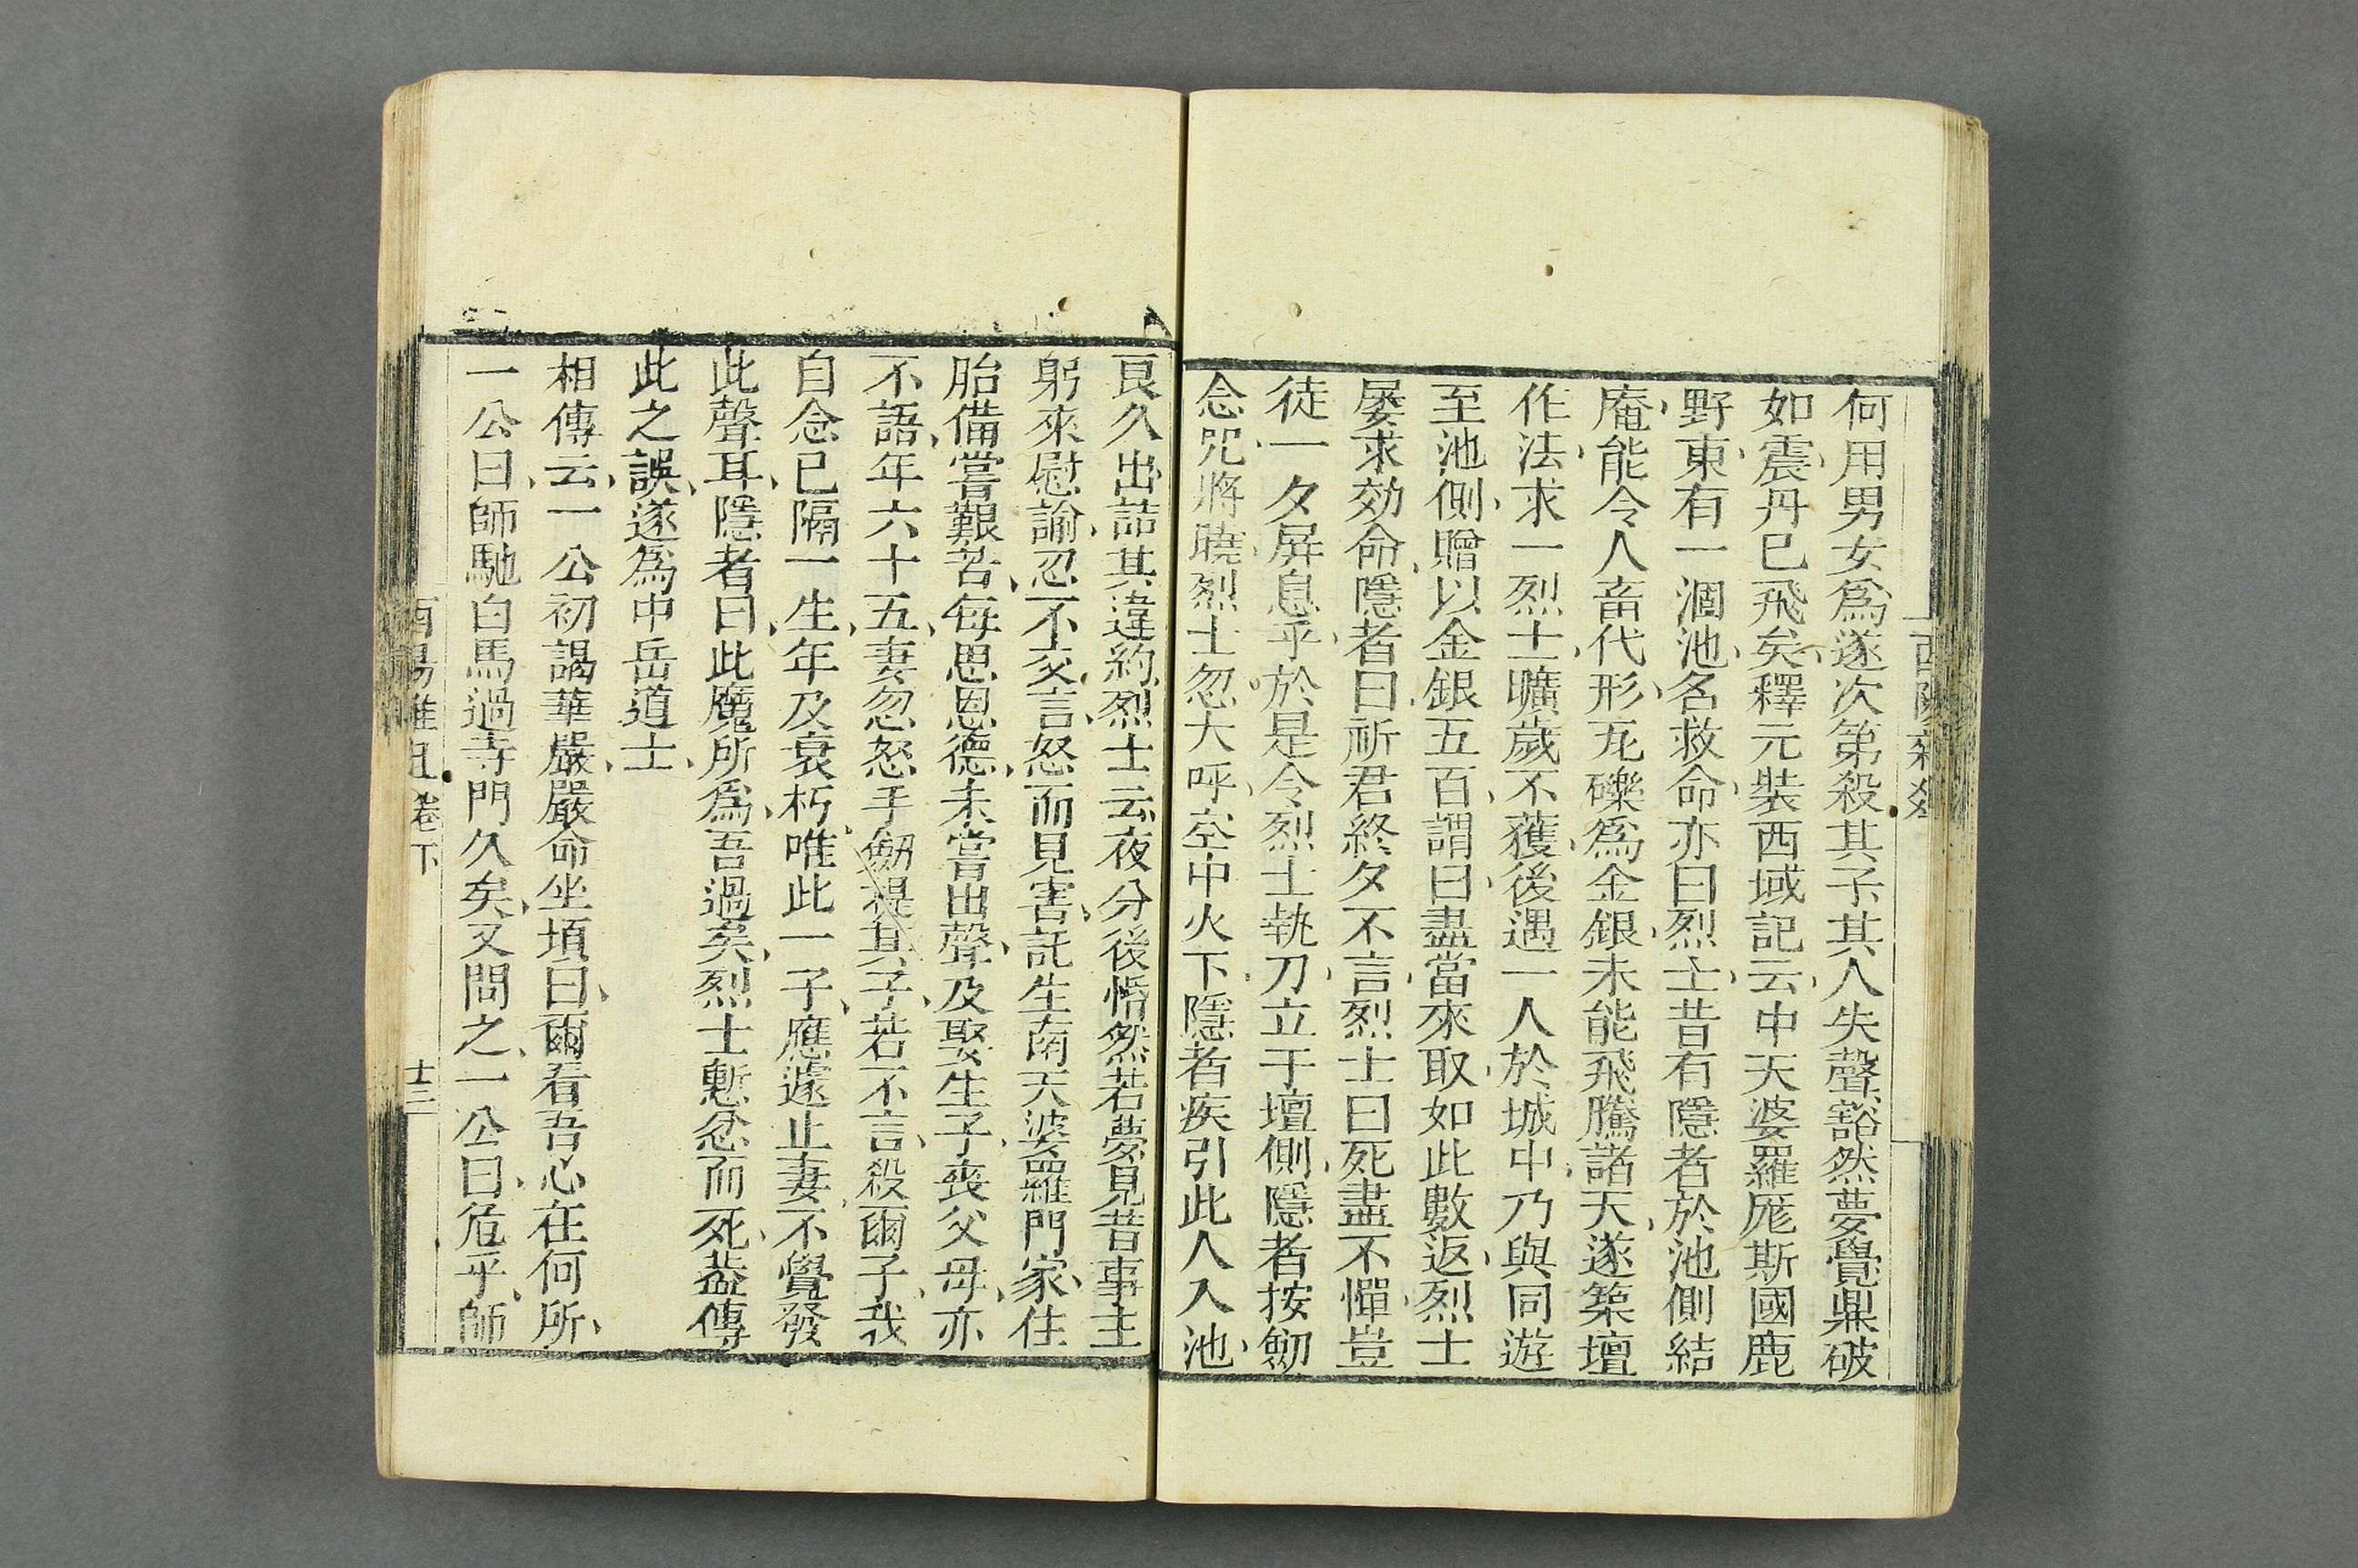 何用男女爲遂次第殺其子其人失聲豁然夢覺鼎破
如震丹已飛矣釋元裝西域記云中天婆羅厖斯國鹿
野東有一涸池名救命亦曰烈士昔有隱者於池側結
庵能令人畜代形瓦礫爲金銀未能飛騰諸天遂築壇
作法求一烈士曠歲不獲後遇一人於城中乃與同遊
至池側贈以金銀五百謂曰盡當來取如此數返烈士
屡求効命隱者曰祈君終夕不言烈士曰死盡不憚豈
徒一夕屏息乎於是令烈士執刀立于壇側隱者按劒
念咒將曉烈士忽大呼空中火下隱者疾引此人入池
良久出詰其違約烈士云夜分後惛然若夢見昔事主
躬來慰諭忍不交言怒而見害託生南天婆羅門家住
胎備嘗艱苦每思恩德未嘗出聲及娶生子喪父母亦
不語年六十五妻忽怒手劒提其子若不言殺爾子我
自念已隔一生年及衰朽唯此一子應遽止妻不覺發
此聲耳隱者曰此魔所爲吾過矣烈士慙忿而死蓋傳
此之誤遂爲中岳道士
相傳云一公初謁華嚴嚴命坐頃曰爾看吾心在何所
一公曰師馳白馬過寺門久矣又問之一公曰危乎師
酉陽雜俎 卷下 十三